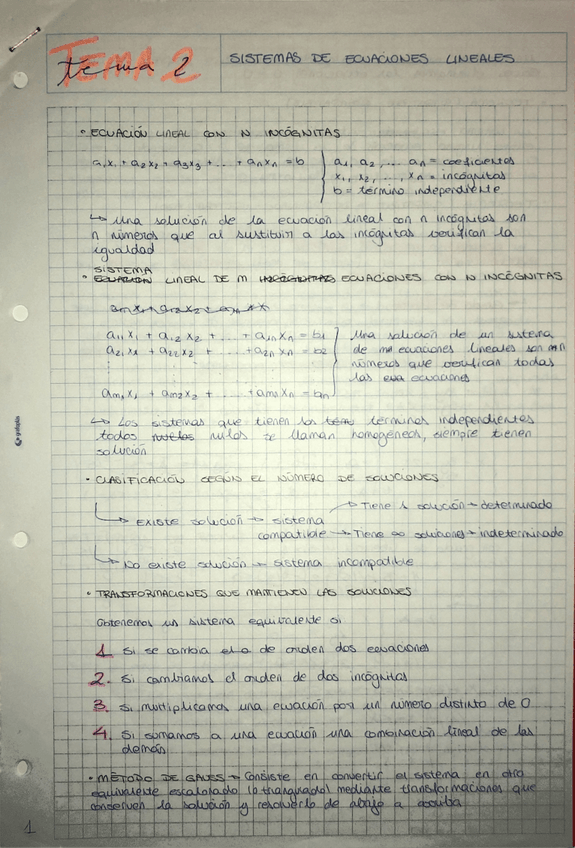 TEMA 2
tema 2
SISTEMAS DE ECUACIONES LINEALES
• ECUACIÓN LINEAL CON N INCÓGNITAS
a₁x₁ + a₂x₂ + a₃x₃ + ... + aₙxₙ = b
a₁, a₂, ... aₙ = coeficientes
x₁, x₂, ..., xₙ = incógnitas
b = término independiente
↳ Una solución de la ecuación lineal con n incógnitas son
n números que al sustituir a las incógnitas verifican la
igualdad
SISTEMA
• ECUACIÓN LINEAL DE M INCÓGNITAS ECUACIONES CON N INCÓGNITAS
a₁₁x₁ + a₁₂x₂ + ... + a₁ₙxₙ = b₁
a₂₁x₁ + a₂₂x₂ + ... + a₂ₙxₙ = b₂
aₘ₁x₁ + aₘ₂x₂ + ... + aₘₙxₙ = bₙ
Una solución de un sistema
de m ecuaciones lineales son n
números que verifican todas
las ecuaciones
↳ Los sistemas que tienen los términos independientes
todos nulos se llaman homogéneos, siempre tienen
solución
• CLASIFICACIÓN SEGÚN EL NÚMERO DE SOLUCIONES
→ Tiene 1 solución → determinado
→ Existe solución → sistema
compatible → Tiene ∞ soluciones → indeterminado
→ No existe solución → sistema incompatible
• TRANSFORMACIONES QUE MANTIENEN LAS SOLUCIONES
Obtenemos un sistema equivalente si
1. Si se cambia el o de orden dos ecuaciones
2. Si cambiamos el orden de dos incógnitas
3. Si multiplicamos una ecuación por un número distinto de 0
4. Si sumamos a una ecuación una combinación lineal de las
demás
• MÉTODO DE GAUSS → Consiste en convertir el sistema en otro
equivalente escalonado (o triangular) mediante transformaciones que
conserven la solución y resolverlo de abajo a arriba
1